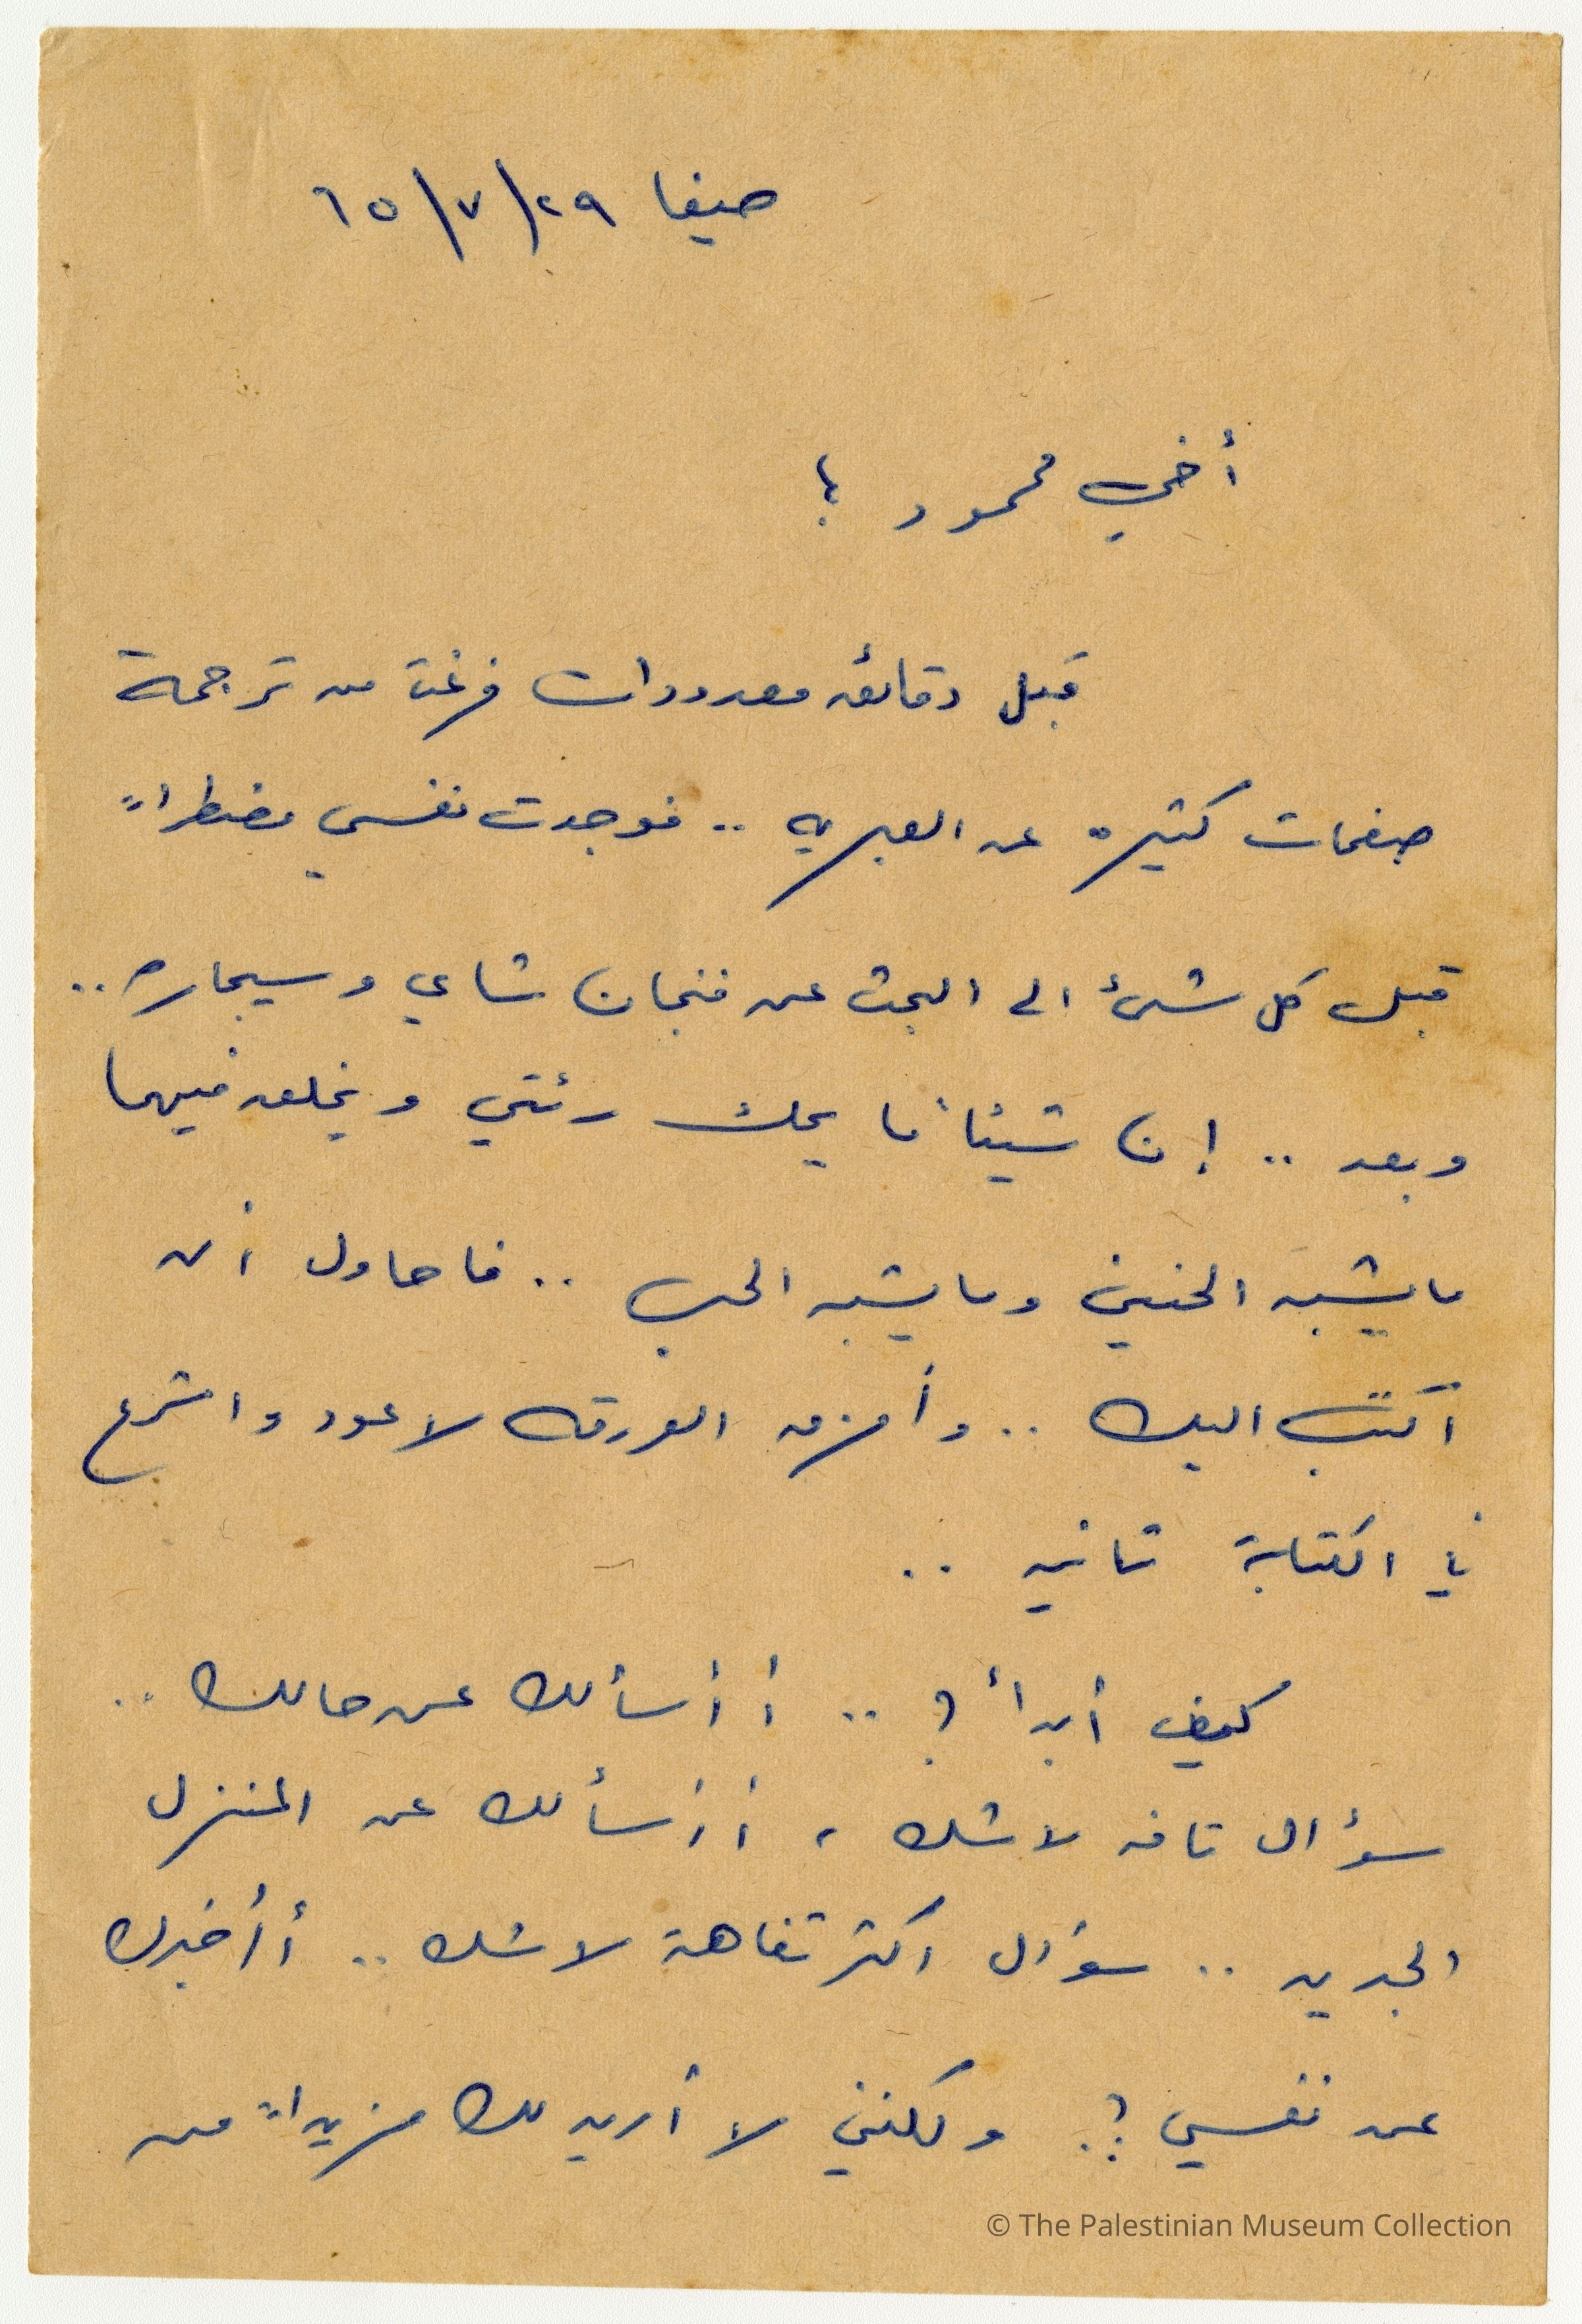 حيفا ٢٩/٧/٦٥
أخي محمود ؛
قبل دقائق معدودات فرغت من ترجمة
صفحات كثيره عن العبريه .. فوجدت نفسي مضطراً
قبل كل شئ الى البحث عن فنجان شاي وسيجاره ..
وبعد .. إن شيئاً ما يحك رئتي ويخلق فيهما
ما يشبه الحنين وما يشبه الحب .. فاحاول أن
اكتب اليك .. وأمزق الورقه لاعود واشرع
في الكتابة ثانيه ..
كيف أبدأ ؟ .. أ أسألك عن حالك ..
سؤال تافه لا شك ، أ أسألك عن المنزل
الجديد .. سؤال اكثر تفاهة لا شك .. أ أخبرك
عن نفسي ؟. ولكنني لا أريد لك مزيداً من
© The Palestinian Museum Collection